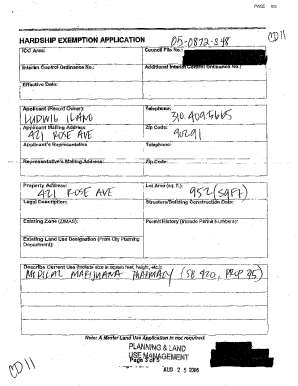 PAGE
HARDSHIP EXEMPTION APPLICATION
05-0872-S48
CD11
ICO Area:
Council File No.:
Interim Control Ordinance No.:
Additional Interim Control Ordinance No.:
Effective Date:
Applicant (Record Owner):
Telephone:
LUDWIG ILAND
310.409.5665
Applicant Mailing Address:
Zip Code:
421 ROSE AVE
90291
Applicant's Representative
Telephone:
Representative's Mailing Address:
Zip Code:
Property Address:
Lot Area (sq. ft.):
421 ROSE AVE
952 (SQFT)
Legal Description:
Structure/Building Construction Date:
Existing Zone (ZIMAS):
Permit History (Include Permit Numbers):
Existing Land Use Designation (From City Planning Department):
Describe Current Use (Include size in square feet, height, etc.)
MEDICAL MARIJUANA PHARMACY (SB 420, PROP 215)
Note: A Master Land Use Application is not required.
PLANNING & LAND
USE MANAGEMENT
Page 3 of 5
AUG 25 2008
CD 11